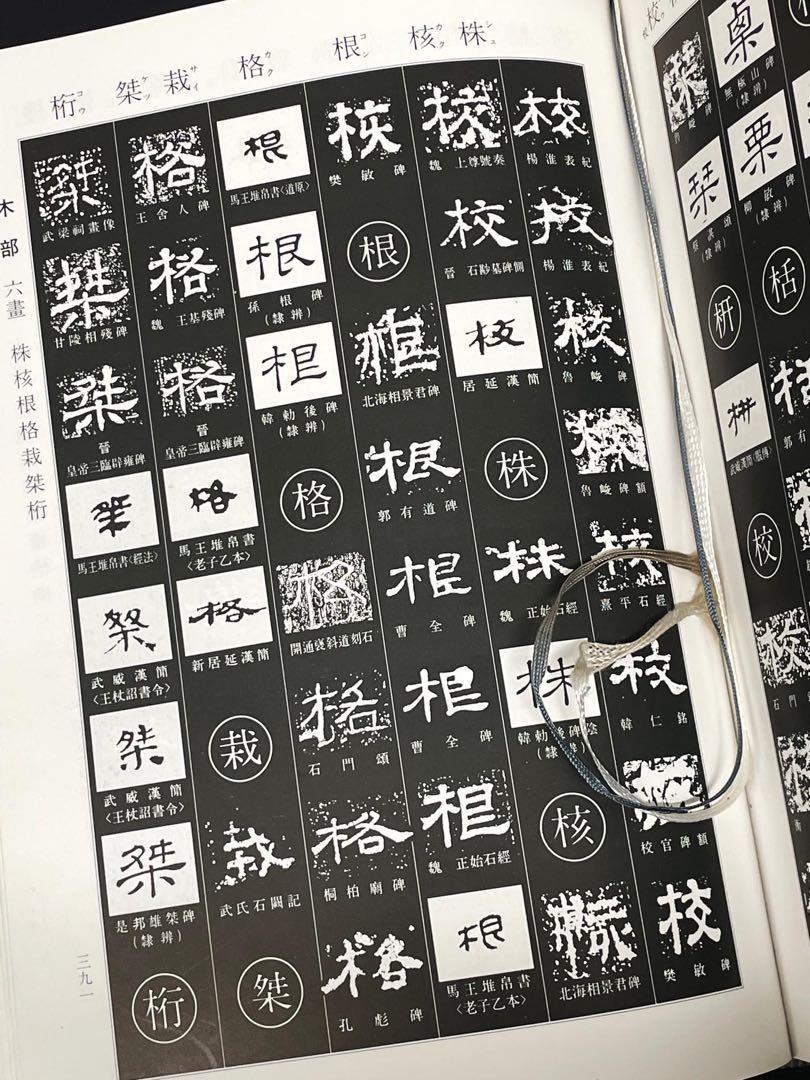 校
栗
無極山碑
(隸辨)
栗
柳敏碑
(隸辨)
栝
郭有
栗
魯峻碑
栞
(隸辨)
枅
武威漢簡〈服傳〉
校
校
石門
株 シュ
核 カク
根 コン
格 カク
栽 サイ
桀 ケツ
桁 コウ
校
楊淮表紀
校
楊淮表紀
校
魯峻碑
校
魯峻碑額
校
熹平石經
校
韓仁銘
校
校官碑額
校
樊敏碑
校
魏 上尊號奏
校
晉 石尠墓碑側
校
居延漢簡
株
株
魏 正始石經
株
韓勑後碑陰
(隸辨)
核
核
北海相景君碑
核
樊敏碑
根
根
北海相景君碑
根
郭有道碑
根
曹全碑
根
曹全碑
根
魏 正始石經
根
馬王堆帛書
〈老子乙本〉
根
馬王堆帛書〈道原〉
根
孫根碑
(隸辨)
根
韓勑後碑
(隸辨)
格
格
開通褒斜道刻石
格
石門頌
格
桐柏廟碑
格
孔彪碑
格
王舍人碑
格
魏 王基殘碑
格
晉
皇帝三臨辟雍碑
格
馬王堆帛書
〈老子乙本〉
格
新居延漢簡
栽
栽
武氏石闕記
桀
桀
武梁祠畫像
桀
甘陵相殘碑
桀
晉
皇帝三臨辟雍碑
桀
馬王堆帛書〈經法〉
桀
武威漢簡
〈王杖詔書令〉
桀
武威漢簡
〈王杖詔書令〉
桀
是邦雄桀碑
(隸辨)
桁
木部 六畫 株核根格栽桀桁
三九一